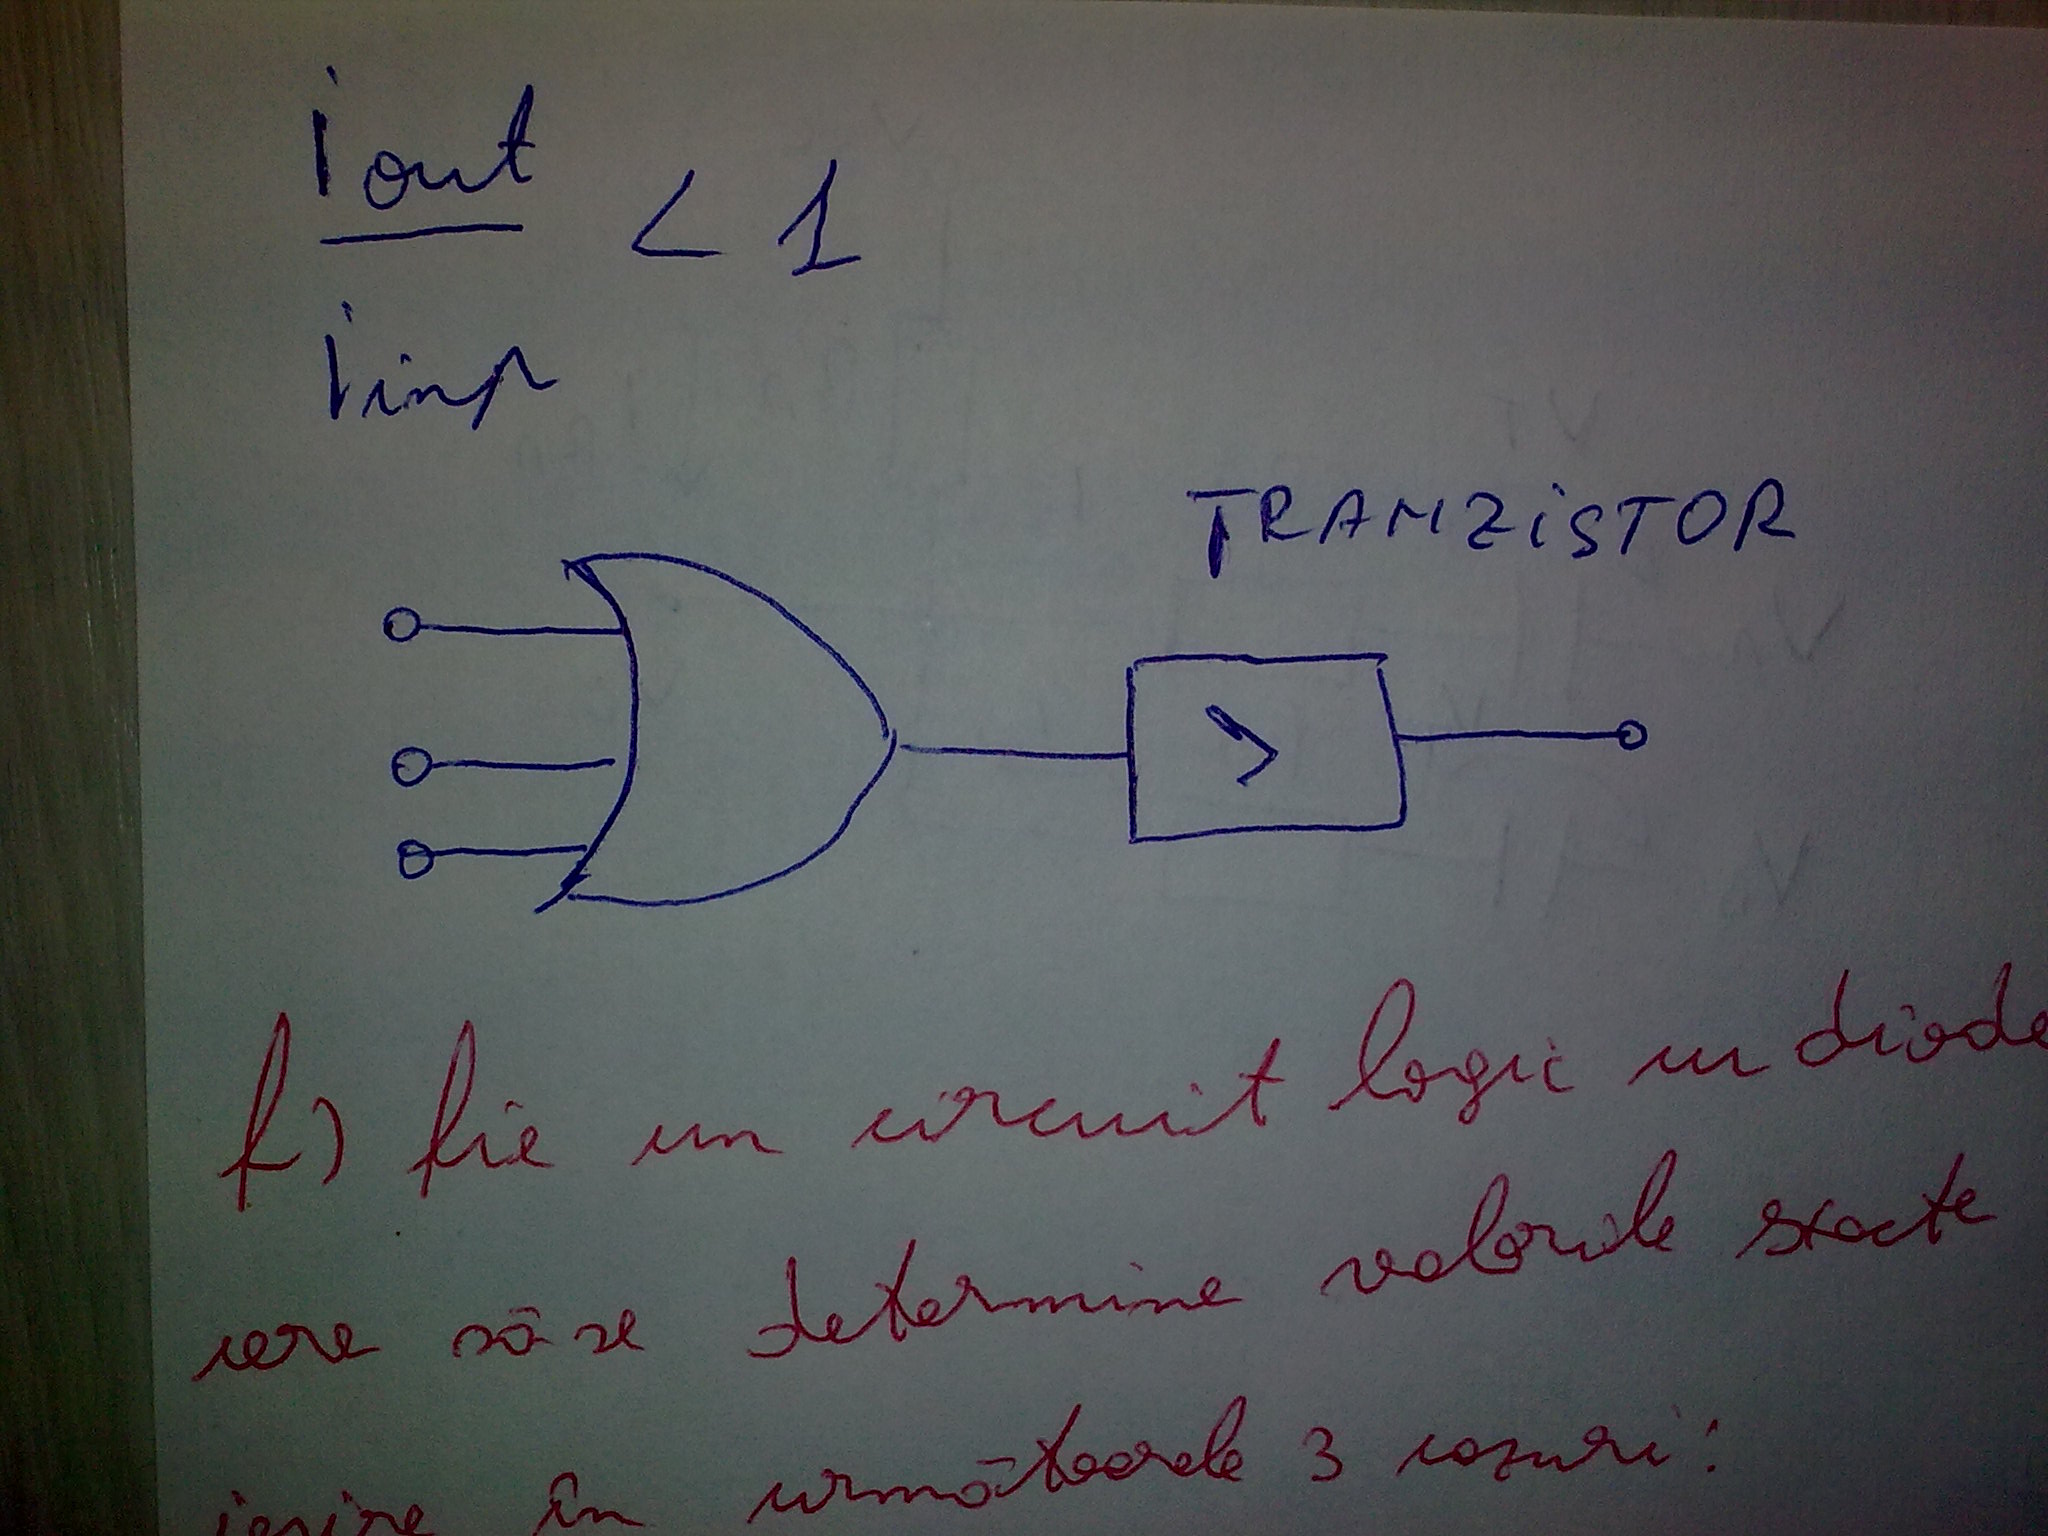 i out
< 1
i inp
TRANZiSTOR
>
f) fie un circuit logic cu diode
cere să se determine valorile exacte
ieșire în următoarele 3 cazuri: